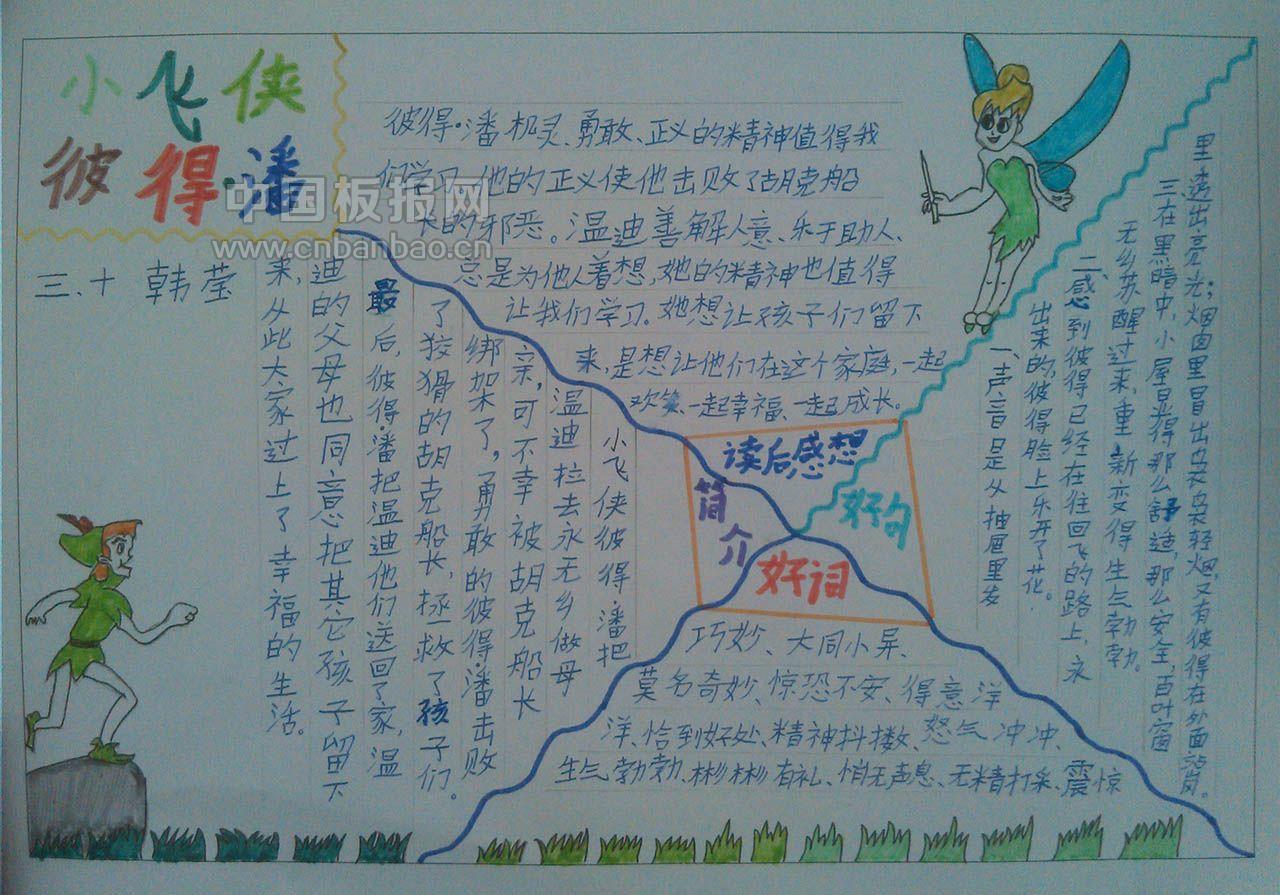 小飞侠
彼得·潘
中国板报网
www.cnbanbao.cn
三、十 韩莹
彼得·潘机灵、勇敢、正义的精神值得我
们学习。他的正义使他击败了胡克船
长的邪恶。温迪善解人意、乐于助人、
总是为他人着想，她的精神也值得
让我们学习。她想让孩子们留下
来，是想让他们在这个家庭，一起
欢笑、一起幸福、一起成长。
读后感想
简介
好句
好词
小飞侠彼得潘把
温迪拉去永无乡做母
亲，可不幸被胡克船长
绑架了，勇敢的彼得·潘击败
了狡猾的胡克船长，拯救了孩子们。
最后，彼得·潘把温迪他们送回了家，温
迪的父母也同意把其它孩子留下
来，从此大家过上了幸福的生活。
一、声音是从抽屉里发
出来的，彼得脸上乐开了花。
二、感到彼得已经在往回飞的路上，永
无乡苏醒过来，重新变得生气勃勃。
三在黑暗中，小屋显得那么舒适，那么安全，百叶窗
里透出亮光；烟囱里冒出袅袅轻烟，又有彼得在外面站岗。
巧妙、大同小异、
莫名奇妙、惊恐不安、得意洋
洋、恰到好处、精神抖擞、怒气冲冲、
生气勃勃、彬彬有礼、悄无声息、无精打采、震惊